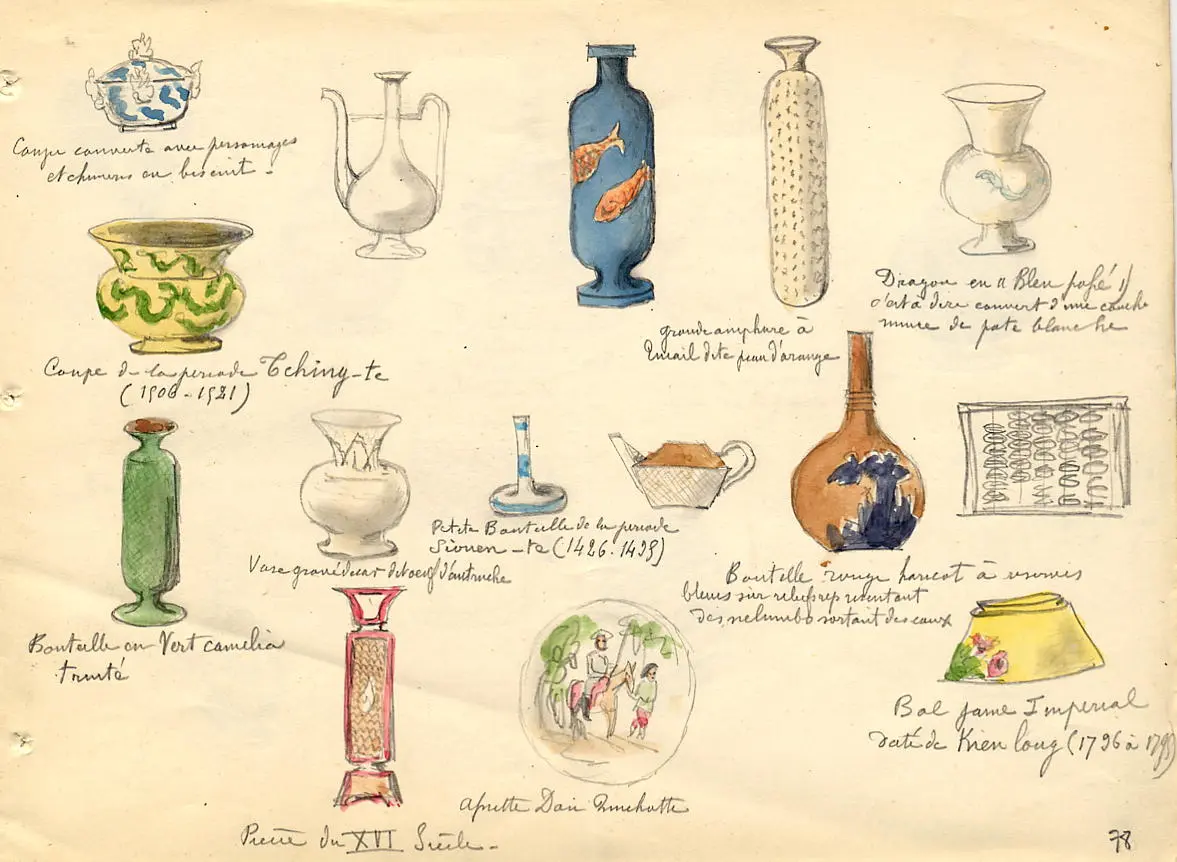 Coupe couverte avec personnages
et chimeres en biscuit.
Coupe de la periode Tching-te
(1506-1521)
grande amphore à
Email dite peau d'orange
Dragon en "Bleu
c'est à dire couvert d'une couche
mince de pate blanche
Vase gravé decor dit oeuf d'autruche
Petite Bouteille de la periode
Siouen-te (1426-1435)
Bouteille rouge haricot à reserves
bleues sur relief representant
des nelumbo sortant des eaux
Bouteille en Vert camelia
truité
Bol jaune Imperial
daté de Kien long (1736 à
Assiette Don Quichotte
Pièce du XVI Siècle.
78